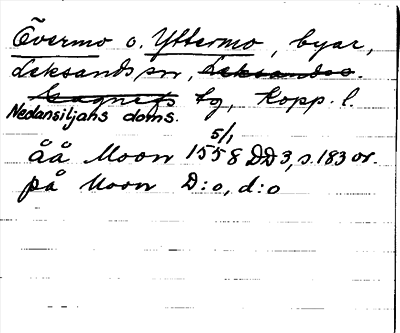 Övermo o. Yttermo, byar,
Leksands sn, Leksands
Gagnefs tg, Kopp. l.
Nedansiljans doms.
5/1
åå Moon 1558 DD3, s. 183 or.
på Moon D:o, d:o